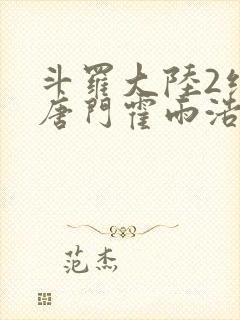 斗羅大陸2絕
唐門霍雨浩
范杰